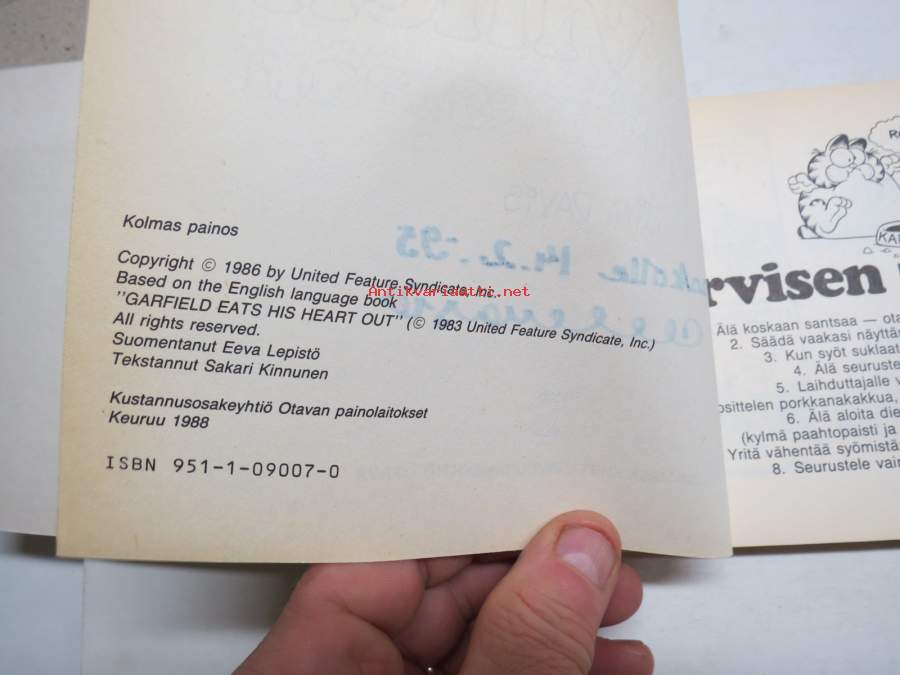 Kolmas painos
Copyright © 1986 by United Feature Syndicate, Inc.
Based on the English language book
"GARFIELD EATS HIS HEART OUT" (© 1983 United Feature Syndicate, Inc.)
All rights reserved.
Suomentanut Eeva Lepistö
Tekstannut Sakari Kinnunen
Kustannusosakeyhtiö Otavan painolaitokset
Keuruu 1988
ISBN 951-1-09007-0
Antikvariaatti.net
14.2.-95
KA
rvisen
Älä koskaan santsaa — ota
2. Säädä vaakasi näyttä
3. Kun syöt suklaat
4. Älä seuruste
5. Laihduttajalle v
osittelen porkkanakakkua,
6. Älä aloita die
(kylmä paahtopaisti ja
Yritä vähentää syömistä
8. Seurustele vain